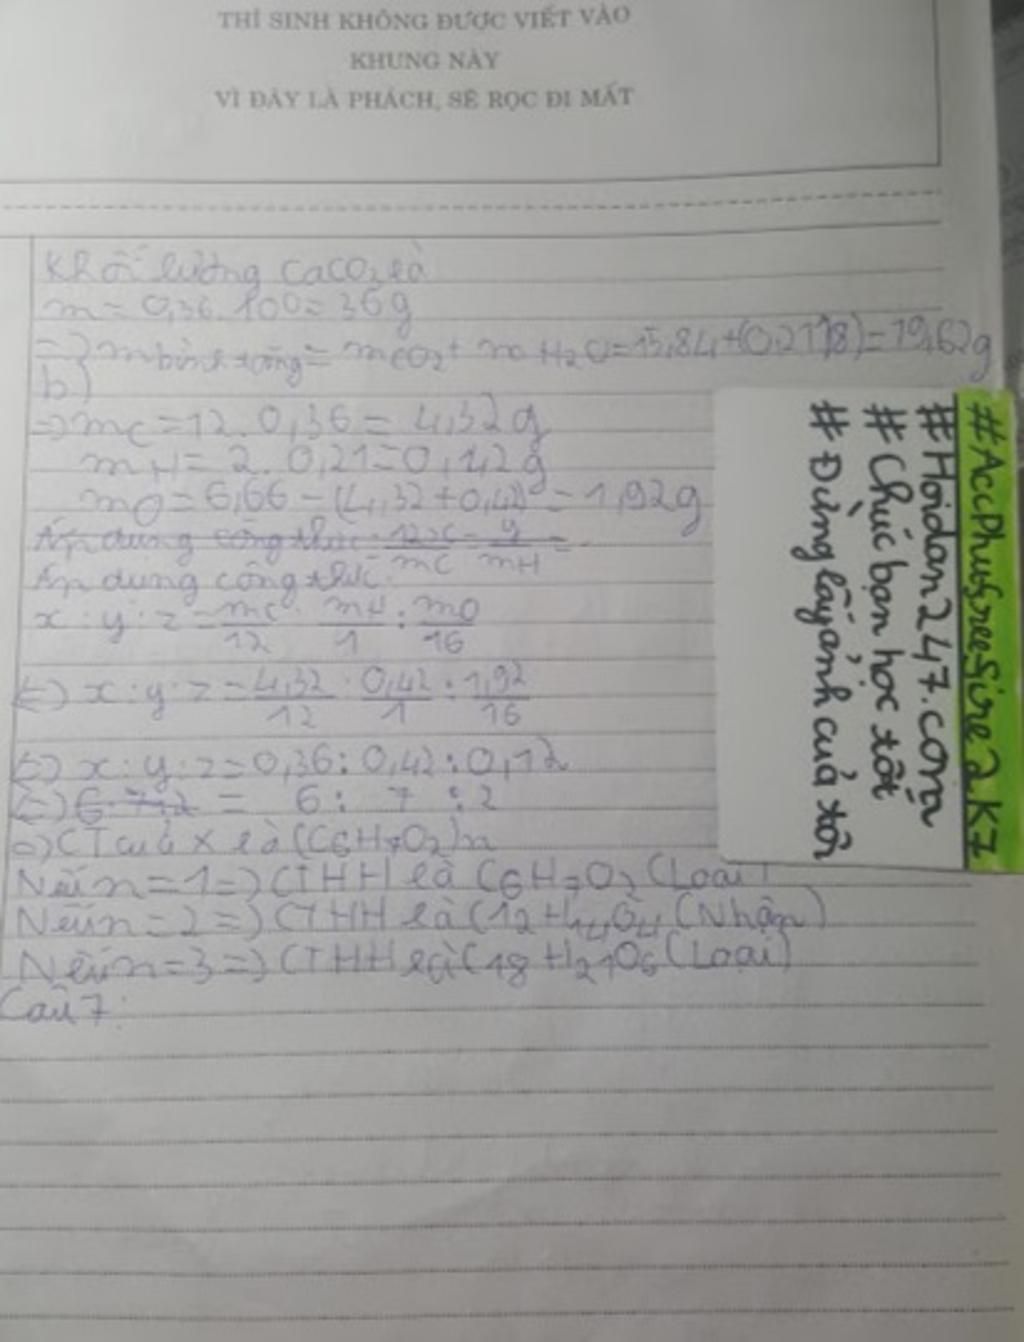 THÍ SINH KHÔNG ĐƯỢC VIẾT VÀO
KHUNG NÀY
VÌ ĐÂY LÀ PHÁCH, SẼ RỌC ĐI MẤT
Khối lượng CaCO3 là
m = 0,36.100 = 36g
=> m bình tăng = mCO2 + mH2O = 15,84 + (0,21.18) = 19,62g
b)
=> mC = 12.0,36 = 4,32g
mH = 2.0,21 = 0,42g
mO = 6,66 - (4,32 + 0,42) = 1,92g
Áp dụng công thức: 12x/mC = y/mH =
Áp dụng công thức:
x : y : z = mC/12 : mH/1 : mO/16
<=> x : y : z = 4,32/12 : 0,42/1 : 1,92/16
<=> x : y : z = 0,36 : 0,42 : 0,12
<=> 6:7:2 = 6 : 7 : 2
=> CT của X là (C6H7O2)n
Nếu n = 1 => CTHH là C6H7O2 (Loại)
Nếu n = 2 => CTHH là C12H14O4 (Nhận)
Nếu n = 3 => CTHH là C18H21O6 (Loại)
Câu 7:
#AccPhuffreefire2K7
#Hoidan247.com
#Chúc bạn học tốt
#Đừng lấy ảnh của tôi